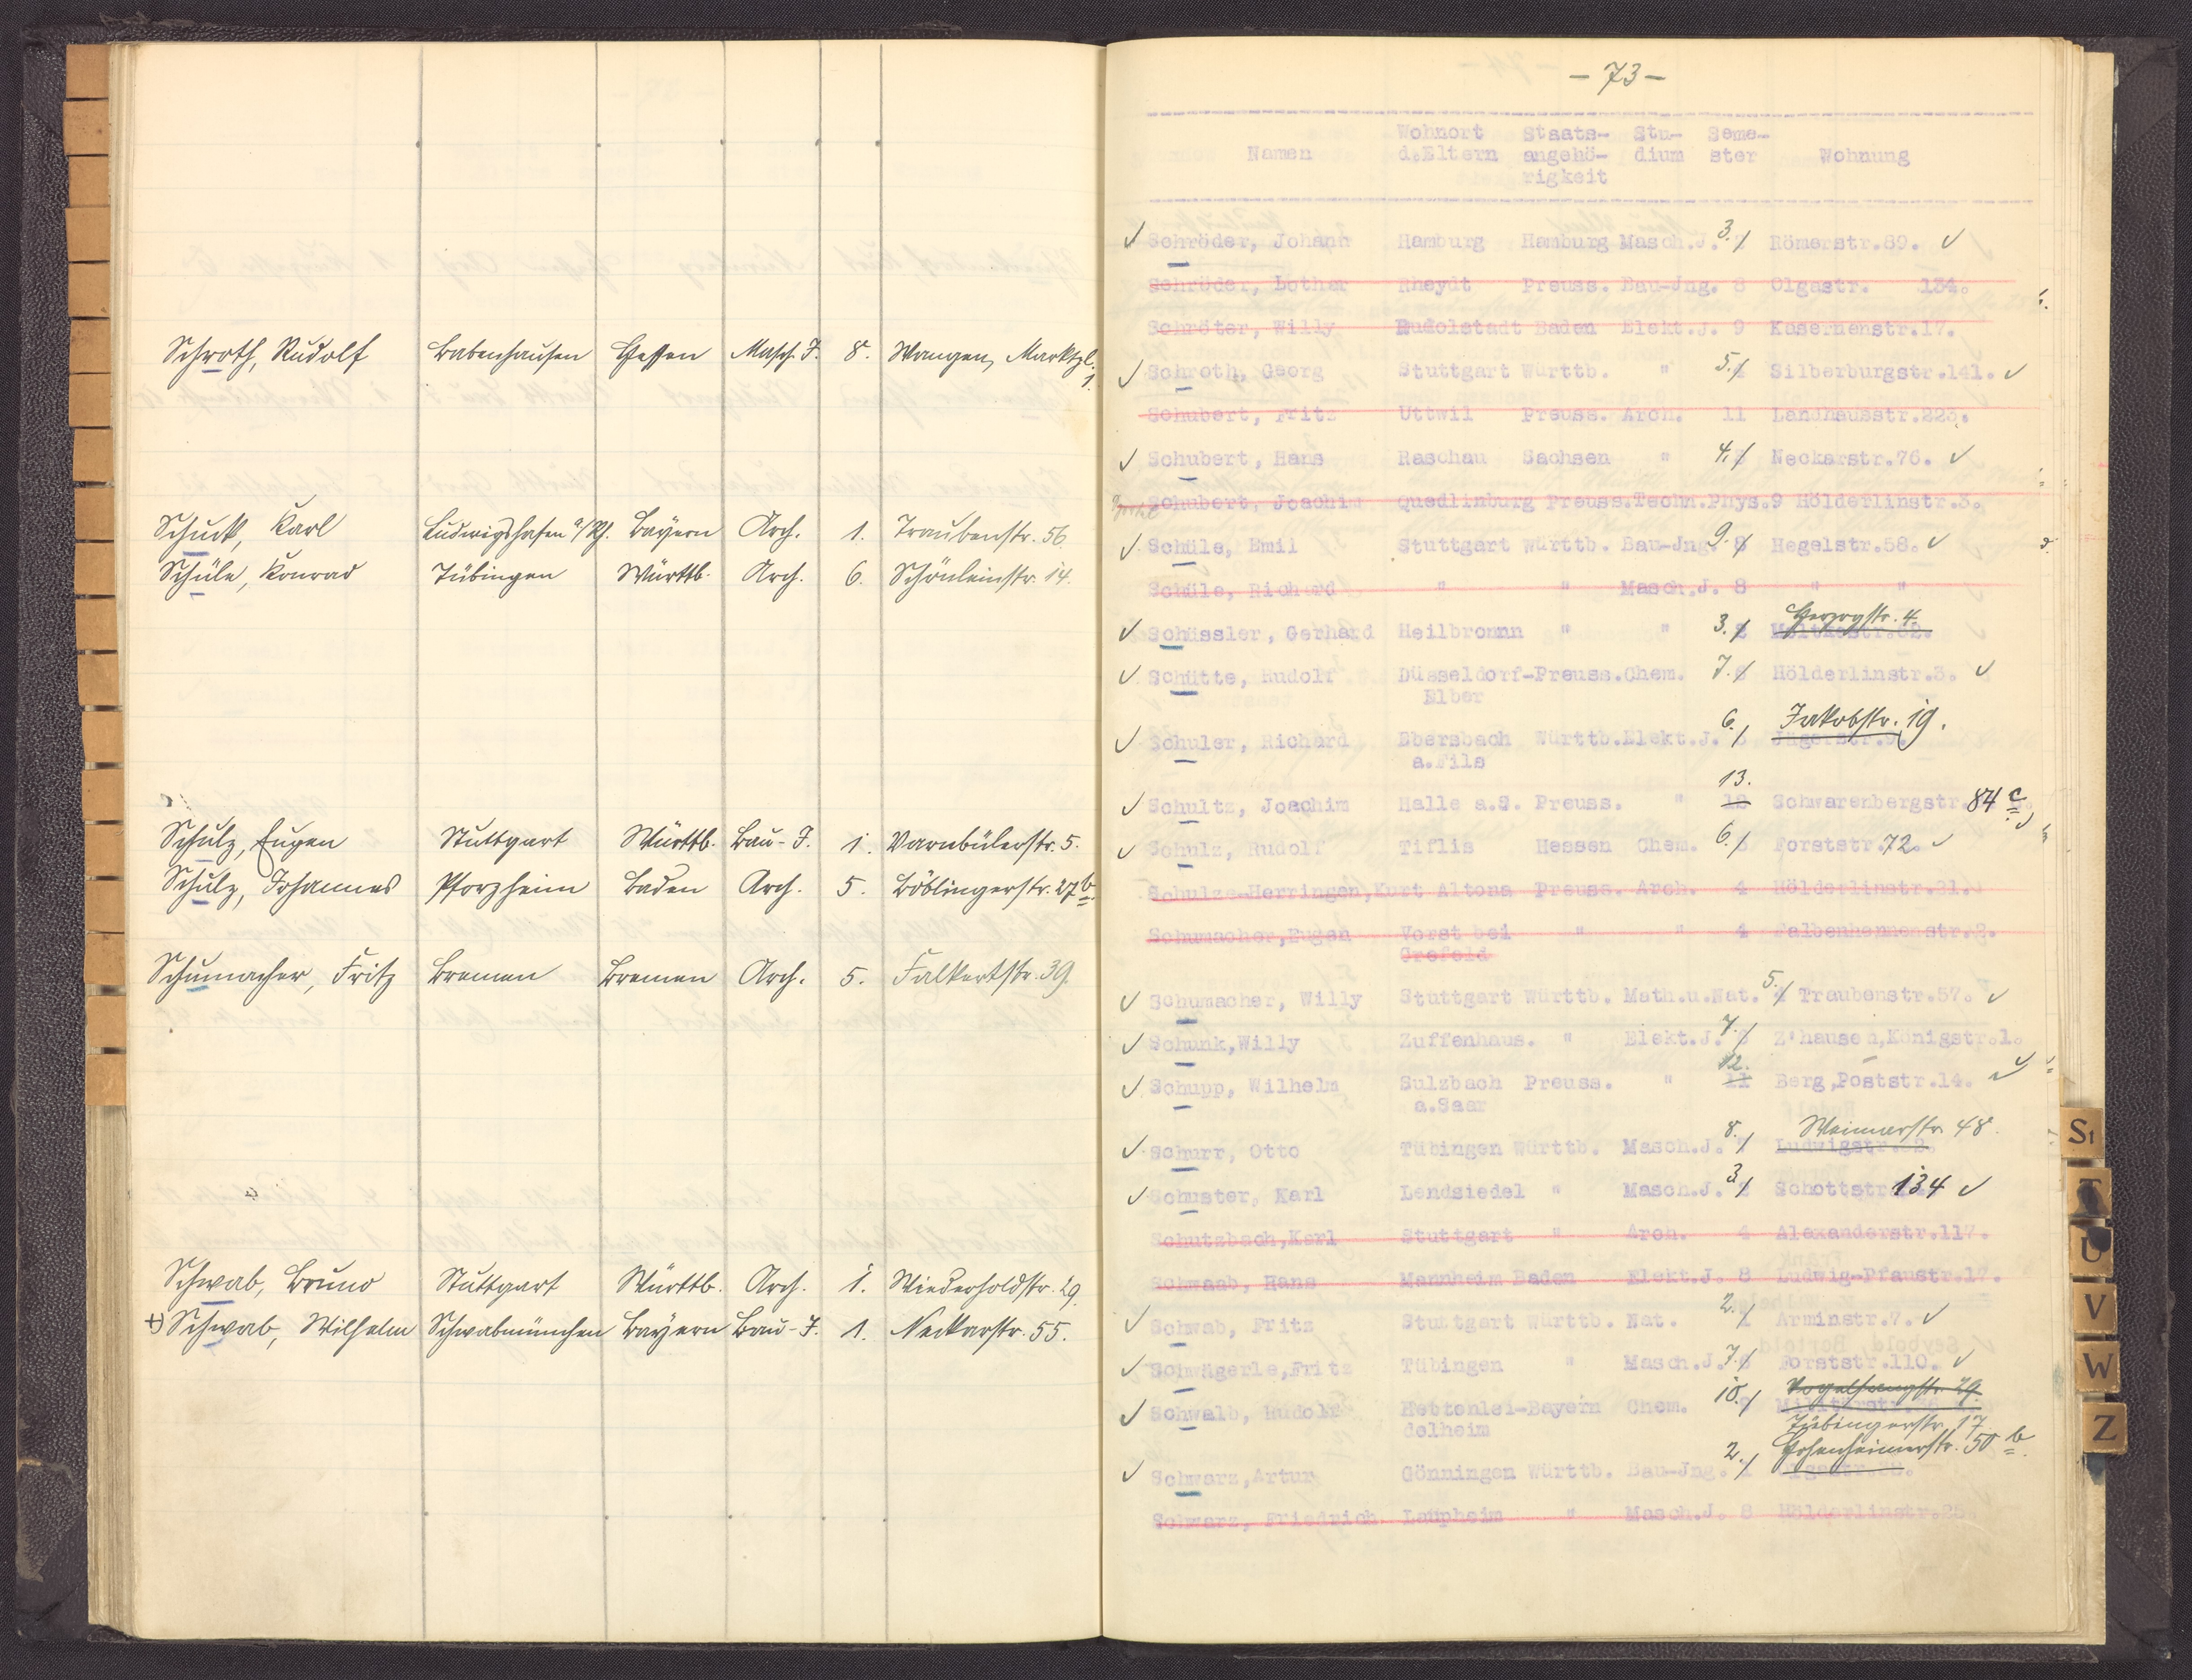 Schroth, Rudolf Babenhausen Hessen Masch. J. 8. Wangen, Marktpl.
1.
Schuck, Karl Ludwigshafen a/Rh. Bayern Arch. 1. Traubenstr. 56.
Schüle, Konrad Tübingen Württb. Arch. 6. Schönleinstr. 14.
Schulz, Eugen Stuttgart Württb. Bau-J. 1. Varnbülerstr. 5.
Schulz, Johannes Pforzheim Baden Arch. 5. Böblingerstr. 27 b.
Schumacher, Fritz Bremen Bremen Arch. 5. Falkertstr. 39.
Schwab, Bruno Stuttgart Württb. Arch. 1. Wiederholdstr. 29.
+) Schwab, Wilhelm Schwabmünchen Bayern Bau-J. 1. Neckarstr. 55.
- 73 -
Wohnort Staats- Stu- Seme-
Namen d.Eltern angehö- dium ster Wohnung
rigkeit
Schröder, Johann Hamburg Hamburg Masch.J. 3. Römerstr.89.
Schröder, Lothar Rheydt Preuss. Bau-Jng. 8 Olgastr. 134.
Schröter, Willy Rudolstadt Baden Elekt.J. 9 Kasernenstr.17.
Schroth, Georg Stuttgart Württb. " 5. Silberburgstr.141.
Schubert, Fritz Uttwil Preuss. Arch. 11 Landhausstr.223.
Schubert, Hans Raschau Sachsen " 4. Neckarstr.76.
Schubert, Joachim Quedlinburg Preuss.Techn.Phys.9 Hölderlinstr.3.
Schüle, Emil Stuttgart Württb. Bau-Jng. 9. 8 Hegelstr.58.
Schüle, Richard " " Masch.J. 8 " "
Herzogstr. 4.
Schüssler, Gerhard Heilbronn " " 3. 2 Moltkestr.62.
Schütte, Rudolf Düsseldorf-Preuss.Chem. 7. 6 Hölderlinstr.3.
Elber
6. Jakobstr. 19.
Schuler, Richard Ebersbach Württb.Elekt.J. Jägerstr.
a.Fils
13.
Schultz, Joachim Halle a.S. Preuss. " 12 Schwarenbergstr. 84 c
Schulz, Rudolf Tiflis Hessen Chem. 6. Forststr. 72.
Schulze-Herringen,Kurt Altona Preuss. Arch. 4 Hölderlinstr.31.
Schumacher,Eugen Vorst bei " " 4 Falbenhennenstr.8.
Crefeld
Schumacher, Willy Stuttgart Württb. Math.u.Nat. 5. 4 Traubenstr.57.
Schunk,Willy Zuffenhaus. " Elekt.J. 7. Z'hausen,Königstr.1.
12.
Schupp, Wilhelm Sulzbach Preuss. " 11 Berg,Poststr.14.
a.Saar
8. Weimarstr. 48.
Schurr, Otto Tübingen Württb. Masch.J. 7 Ludwigstr.
Schuster, Karl Lendsiedel " Masch.J. 3. 2 Schottstr. 134
Schutzbach,Karl Stuttgart " Arch. 4 Alexanderstr.117.
Schwaab, Hans Mannheim Baden Elekt.J. 8 Ludwig-Pfaustr.17.
Schwab, Fritz Stuttgart Württb. Nat. 2. 1 Arminstr.7.
Schwägerle,Fritz Tübingen " Masch.J. 7. 6 Forststr.110.
Vogelsangstr. 29.
Schwalb, Rudolf Hettenlei-Bayern Chem. 10.
delheim Tübingerstr. 17
Hohenheimerstr. 50 b.
Schwarz,Artur Gönningen Württb. Bau-Jng. 2. 1 Olgastr.
Schwarz, Friedrich Laupheim " Masch.J. 8 Hölderlinstr.25.
St
T
U
V
W
Z